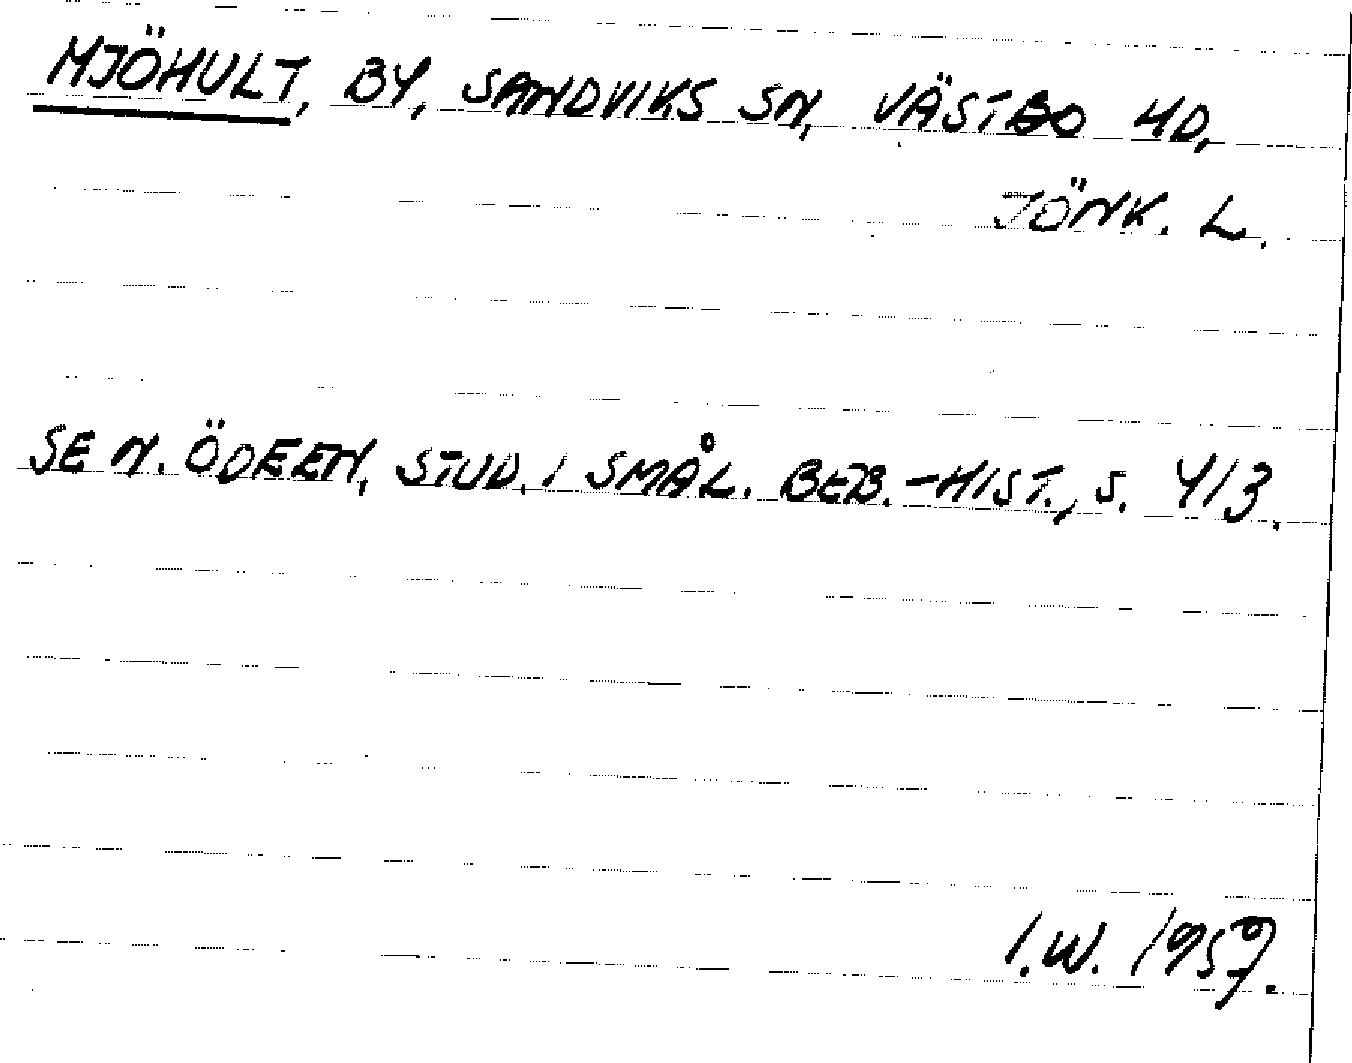 MJÖHULT, BY, SANDVIKS SN, VÄSTBO HD,
JÖNK. L.
SE N. ÖDEEN, STUD. I SMÅL. BEB.-HIST., S. 413.
I.W. 1959.